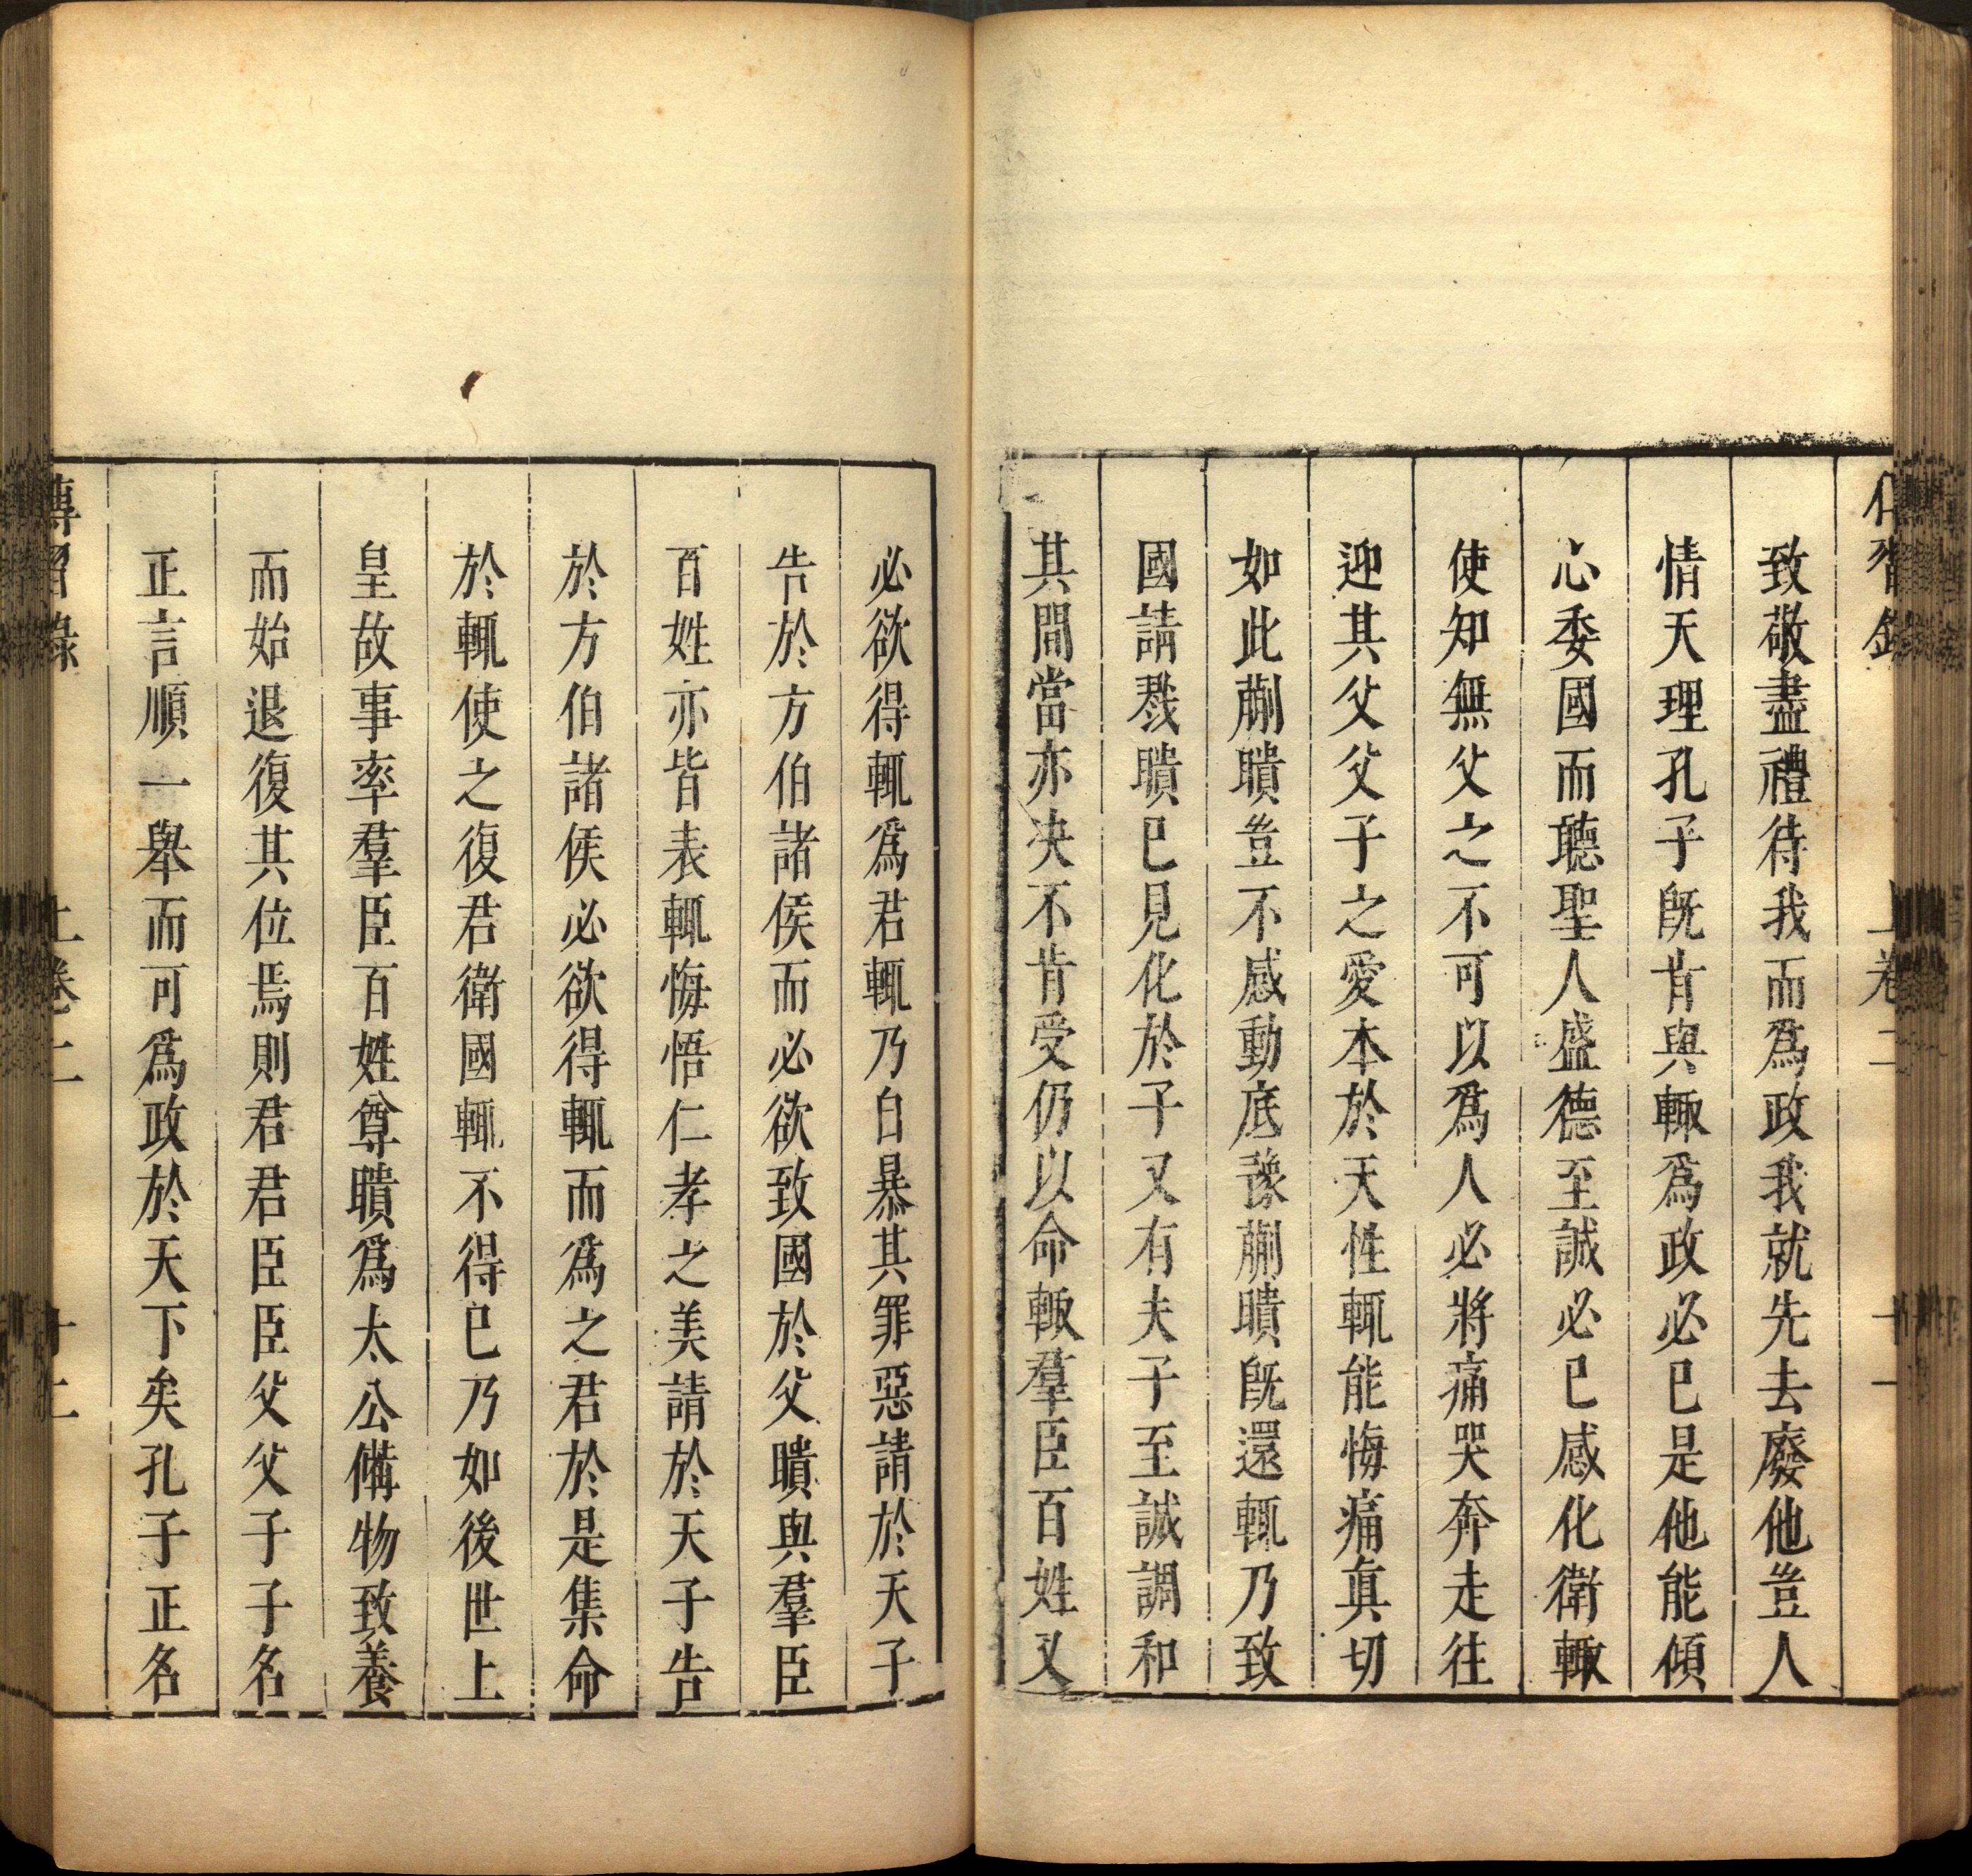 致敬盡禮待我而爲政我就先去廢他豈人
情天理孔子旣肯與輙爲政必已是他能傾
心委國而聽聖人盛德至誠必已感化衛輙
使知無父之不可以爲人必將痛哭奔走往
迎其父父子之愛本於天性輒能悔痛眞切
如此蒯聵豈不感動底豫蒯聵旣還輒乃致
國請戮聵已見化於子又有夫子至誠調和
其間當亦决不肯受仍以命輙羣臣百姓又
必欲得輒爲君輒乃自暴其罪惡請於天子
告於方伯諸侯而必欲致國於父聵與羣臣
百姓亦皆表輒悔悟仁孝之美請於天子告
於方伯諸侯必欲得輒而爲之君於是集命
於輒使之復君衛國輒不得已乃如後世上
皇故事率羣臣百姓尊聵爲太公備物致養
而始退復其位焉則君君臣臣父父子子名
正言順一舉而可爲政於天下矣孔子正名
傳習錄 上卷二 十二